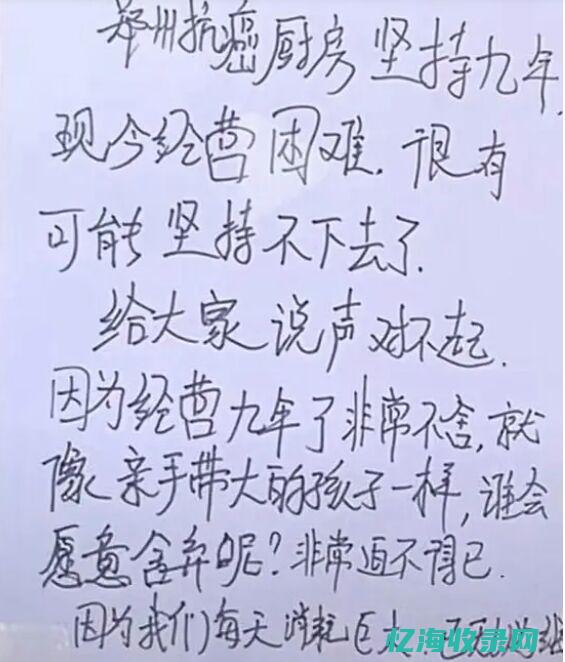 郑州抗癌厨房坚持九年,
现今经营困难.很有
可能坚持不下去了.
给大家说声对不起.
因为经营九年了非常不舍,就
像亲手带大的孩子一样,谁会
愿意舍弃呢?非常迫不得已.
因为我们每天消耗巨大
亿海收录网